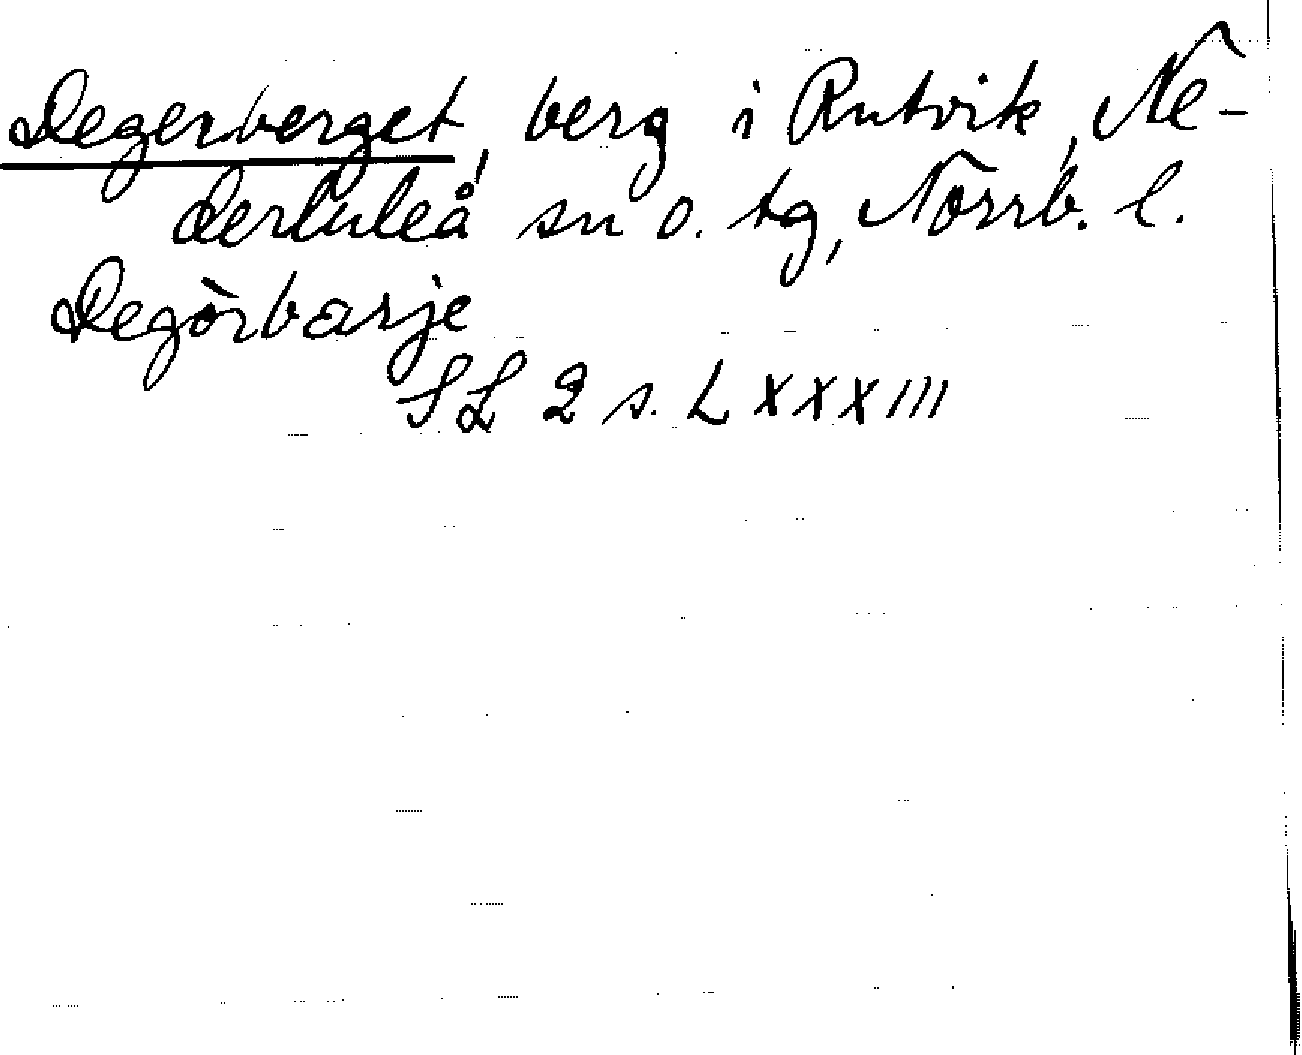 Degerberget, berg i Rutvik, Ne-
derluleå sn o. tg, Norrb. l.
Degòrbarje
SL 2 s. LXXXIII